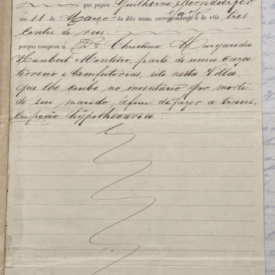 que pagou Guilherme
em 11 de Março de dito anno, correspondente a de reis tres
contos de reis
porque comprou á Dª Christina Margarida
Haubert Monteiro, parte de uma caza
terreno e bemfeitorias, sito nesta Villa
que lhe coube, no inventario por morte
de seu marido, afim de fazer a trans
cripção hypothecaria.